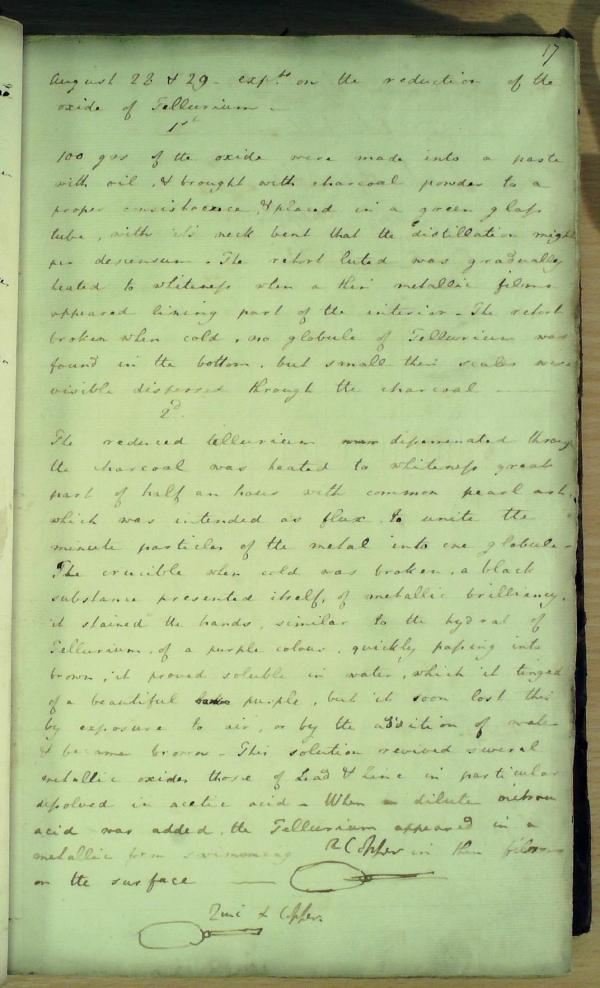 17
August 28 & 29 - expts on the reduction of the
oxide of Tellurium -
1st
100 grs of the oxide were made into a paste
with oil, & brought with charcoal powder to a
proper consistence, & placed in a green glass
tube, with its neck bent that the distillation might
per descensum - The retort luted was gradually
heated to whiteness when a thin metallic films
appeared lining part of the interior - The retort
broken when cold, no globule of Tellurium was
found in the bottom, but small thin scales were
visible dispersed through the charcoal -
2d.
The reduced tellurium disseminated through
the charcoal was heated to whiteness great
part of half an hour with common pearl ash,
which was intended as flux, to unite the
minute particles of the metal into one globule -
The crucible when cold was broken, a black
substance presented itself, of metallic brilliancy,
it stained the hands, similar to the hydrat of
Tellurium, of a purple colour, quickly passing into
brown, it proved soluble in water, which it tinged
of a beautiful purple, but it soon lost this
by exposure to air, or by the addition of water
& became brown - This solution revived several
metallic oxides those of Lead & Zinc in particular
dissolved in acetic acid - When dilute nitrous
acid was added, the Tellurium appeared in a
metallic form swimming Copper in thin films
on the surface -
Zinc & Copper.